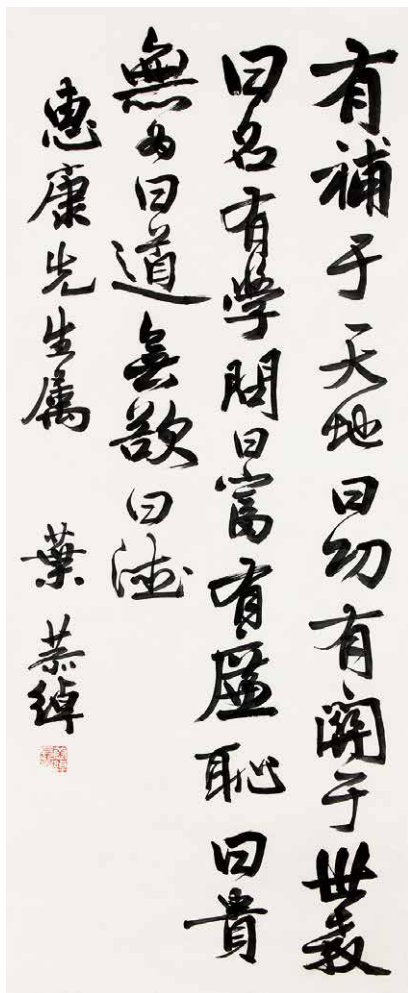 有補于天地曰功有關于世教
曰名有學問曰富有廉恥曰貴
無為曰道無欲曰德
惠康先生属 葉恭綽